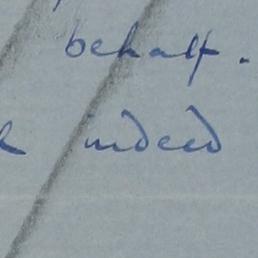 behalf.
indeed